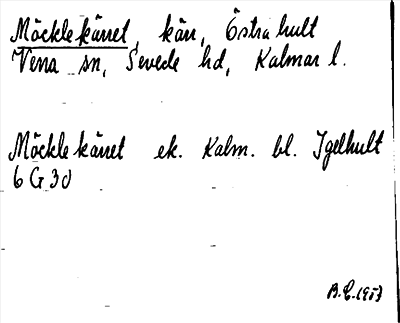 Möcklekärret, kärr, Östra hult
Vena sn, Sevede hd, Kalmar l.
Möcklekärret ek. Kalm. bl. Igelhult
6 G 3d